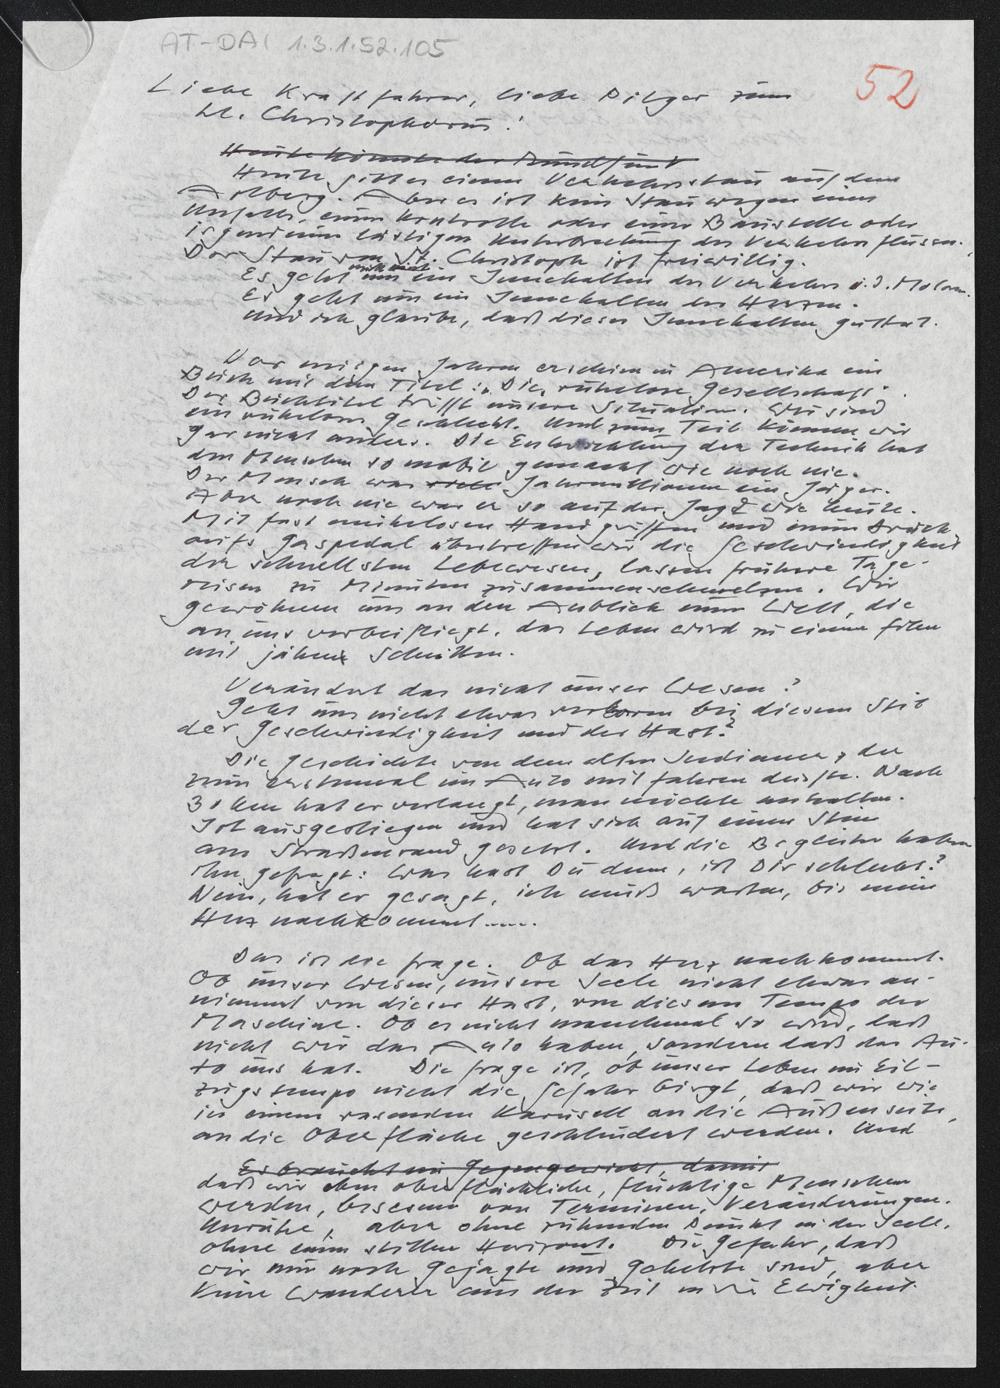 AT-DAI 1.3.1.52.105
52
Liebe Kraftfahrer, liebe Pilger zum
hl. Christophorus!
Heute könnte der Rundfunk
Heute gibt es einen Verkehrsstau auf dem
Arlberg. Aber es ist kein Stau wegen eines
Unfalls, einer Kontrolle oder einer Baustelle oder
irgendeiner lästigen Unterbrechung des Verkehrsflusses.
Der Stau von St. Christoph ist freiwillig.
Es geht nicht um ein Innehalten des Verkehrs u. d. Motoren.
Es geht um ein Innehalten des Herzens.
Und ich glaube, daß dieses Innehalten guttut.
Vor einigen Jahren erschien in Amerika ein
Buch mit dem Titel: "Die ruhelose Gesellschaft".
Der Buchtitel trifft unsere Situation. Wir sind
ein ruheloses Geschlecht. Und zum Teil können wir
gar nicht anders. Die Entwicklung der Technik hat
den Menschen so mobil gemacht wie noch nie.
Der Mensch war viele Jahrmillionen ein Jäger.
Aber noch nie war er so auf der Jagd wie heute.
Mit fast mühelosen Handgriffen und einem Druck
aufs Gaspedal übertreffen wir die Geschwindigkeit
der schnellsten Lebewesen, lassen frühere Tage-
reisen zu Minuten zusammenschmelzen. Wir
gewöhnen uns an den Anblick einer Welt, die
an uns vorbeifliegt. das Leben wird zu einem Film
mit jähen Schnitten.
Verändert das nicht unser Wesen?
Geht uns nicht etwas verloren bei diesem Stil
der Geschwindigkeit und der Hast?
Die Geschichte von dem alten Indianer, der
zum erstenmal im Auto mitfahren durfte. Nach
30 km hat er verlangt, man möchte anhalten.
Ist ausgestiegen und hat sich auf einen Stein
am Straßenrand gesetzt. Und die Begleiter haben
ihn gefragt: Was hast Du denn, ist Dir schlecht?
Nein, hat er gesagt, ich muß warten, bis mein
Herz nachkommt.....
Das ist die Frage. Ob das Herz nachkommt.
Ob unser Wesen, unsere Seele nicht etwas an-
nimmt von dieser Hast, von diesem Tempo der
Maschine. Ob es nicht manchmal so wird, daß
nicht wir das Auto haben, sondern daß das Au-
to uns hat. Die Frage ist, ob unser Leben im Eil-
zugstempo nicht die Gefahr birgt, daß wir wie
in einem rasenden Karussell an die Außenseite,
an die Oberfläche geschleudert werden. Und
Es braucht ein Gegengewicht, damit
daß wir eben oberflächliche, flüchtige Menschen
werden, besessen von Terminen, Veränderungen.
Unruhe, aber ohne ruhenden Punkt in der Seele,
ohne einen stillen Horizont. Die Gefahr, daß
wir nur noch Gejagte und Gehetzte sind, aber
keine Wanderer aus der Zeit in die Ewigkeit.